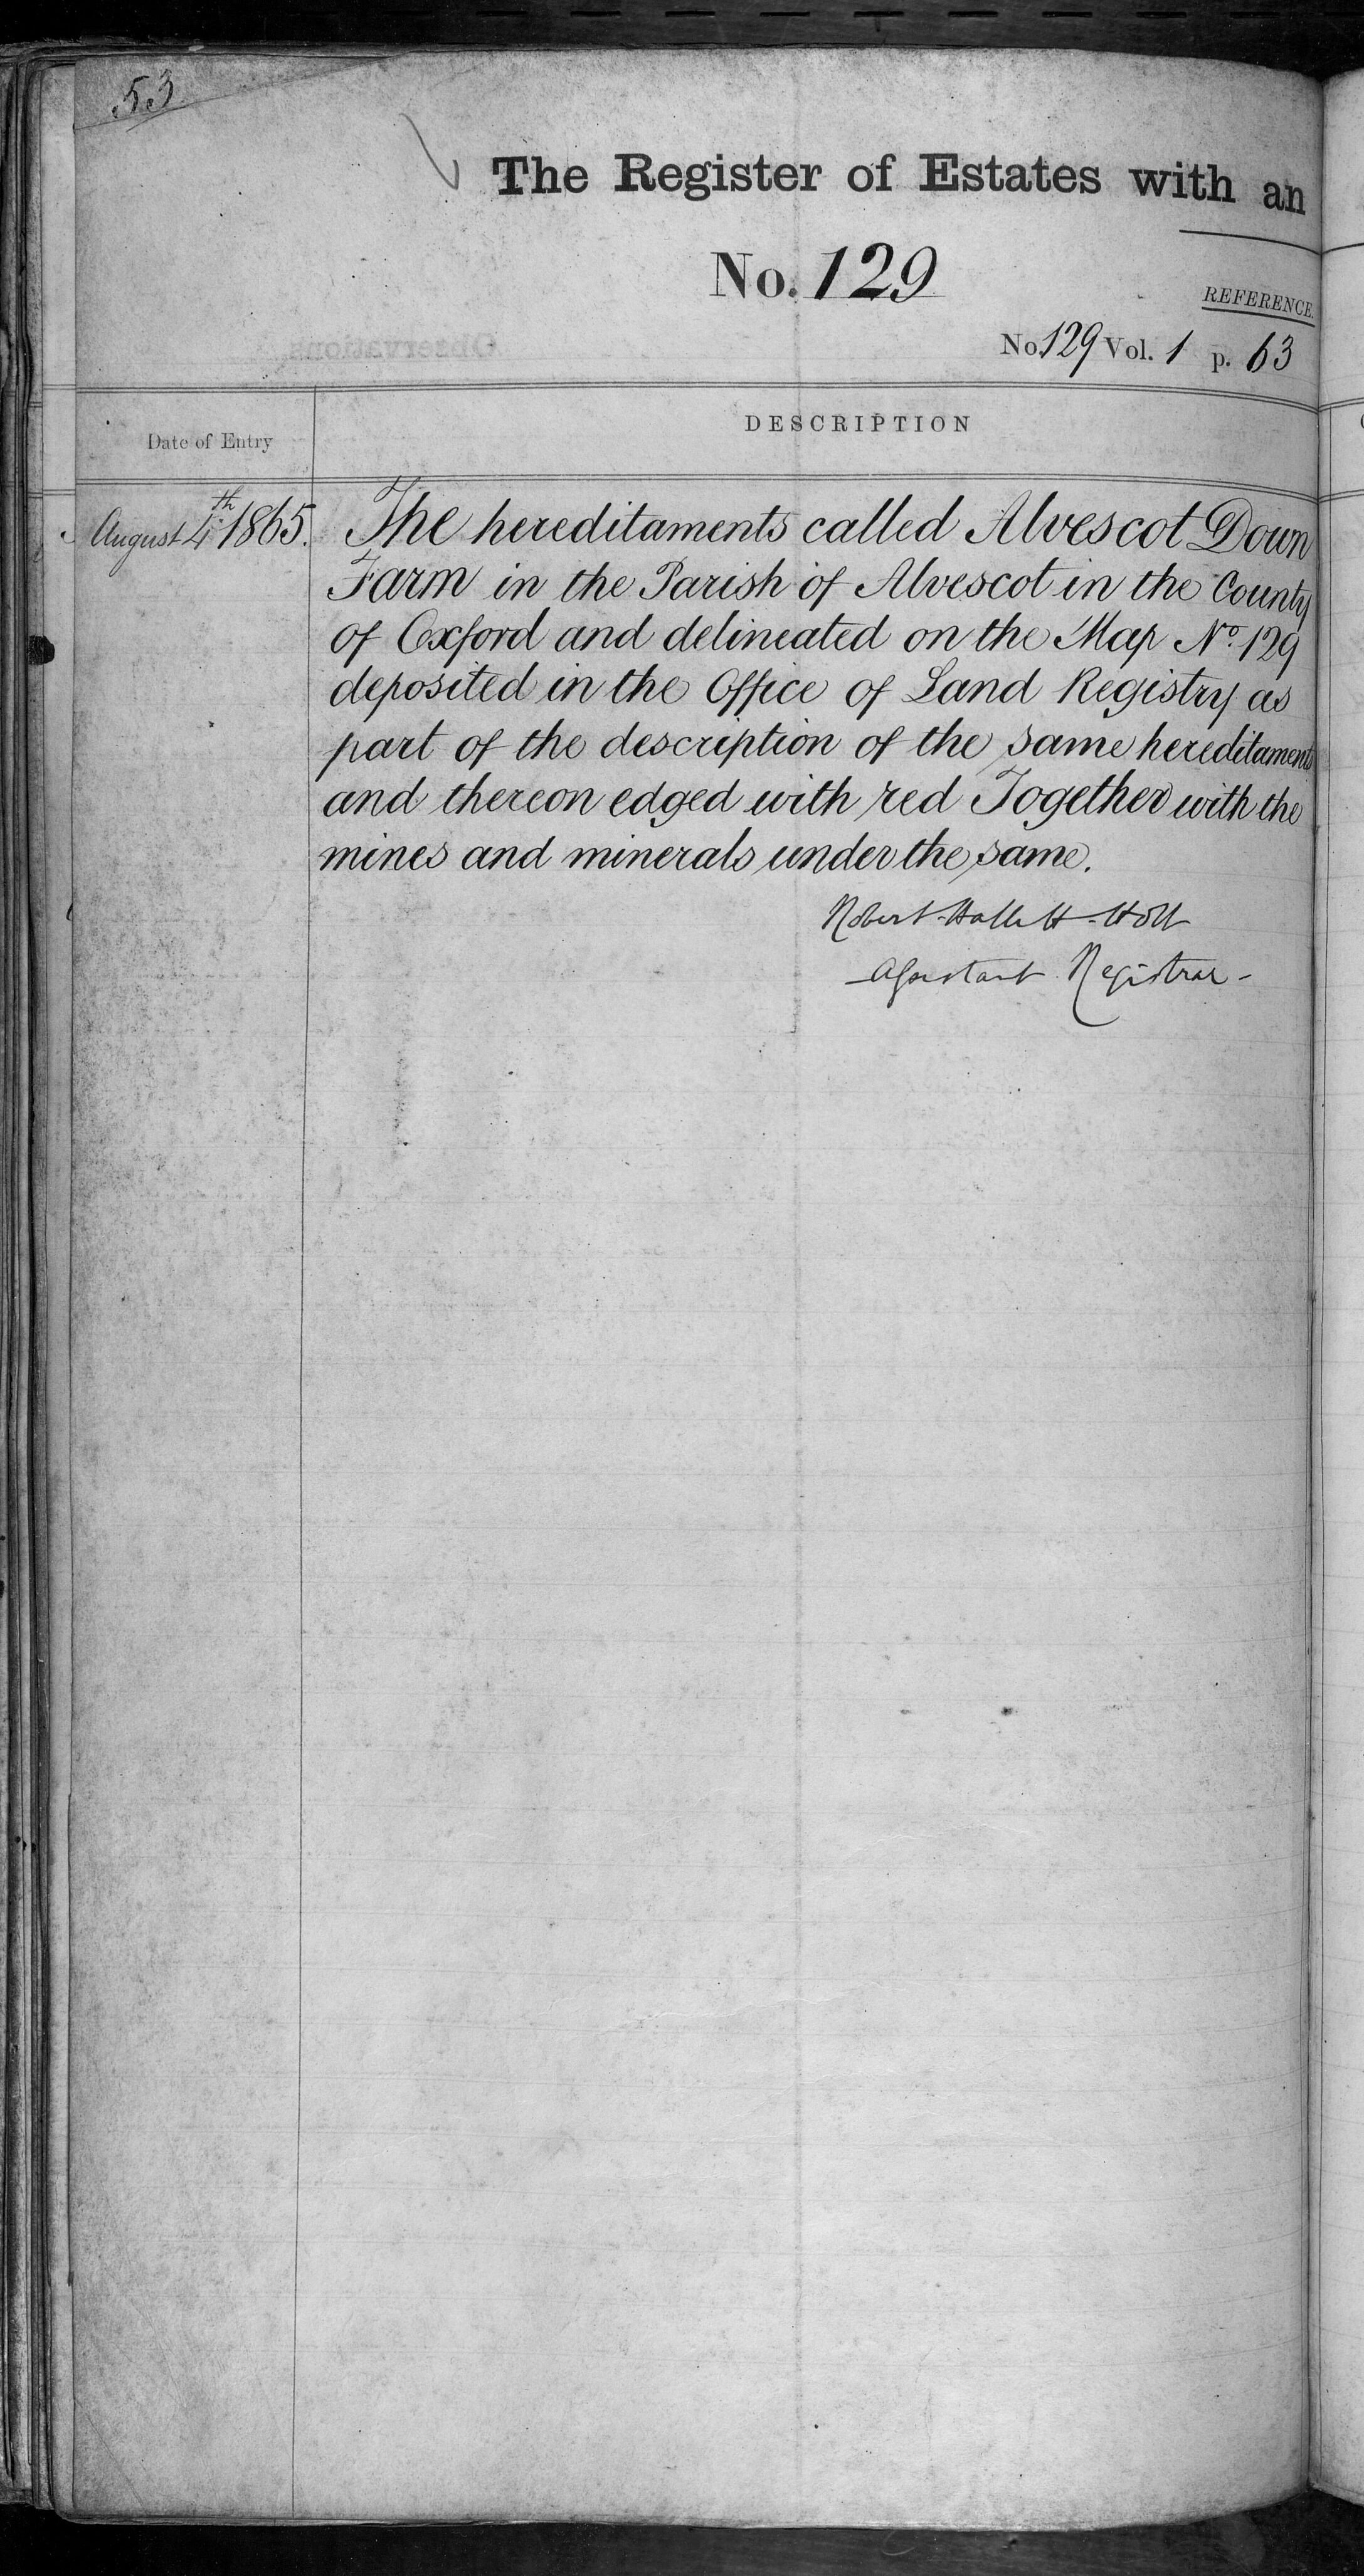 53
The Register of Estates with an
No. 129
REFERENCE.
No 129 Vol. 1 p. 63
Date of Entry
DESCRIPTION
August 4th 1865.
The hereditaments called Alvescot Down
Farm in the Parish of Alvescot in the County
of Oxford and delineated on the Map No. 129
deposited in the Office of Land Registry as
part of the description of the same hereditaments
and thereon edged with red Together with the
mines and minerals under the same.
Robert Hallett Holt
Assistant Registrar -